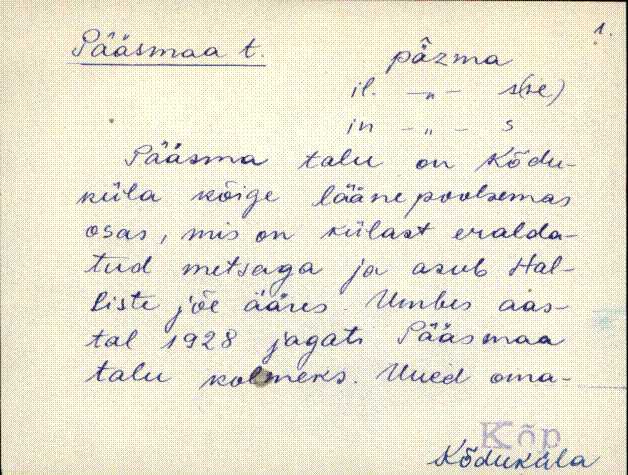 1.
Pääsmaa t. pâzma
il. -„- s(se)
in -„- s
Pääsma talu on Kõdu-
küla kõige läänepoolsemas
osas, mis on külast eralda-
tud metsaga ja asub Hal-
liste jõe ääres. Umbes aas-
tal 1928 jagati Pääsmaa
talu kolmeks. Uued oma-
Kõp
Kõduküla